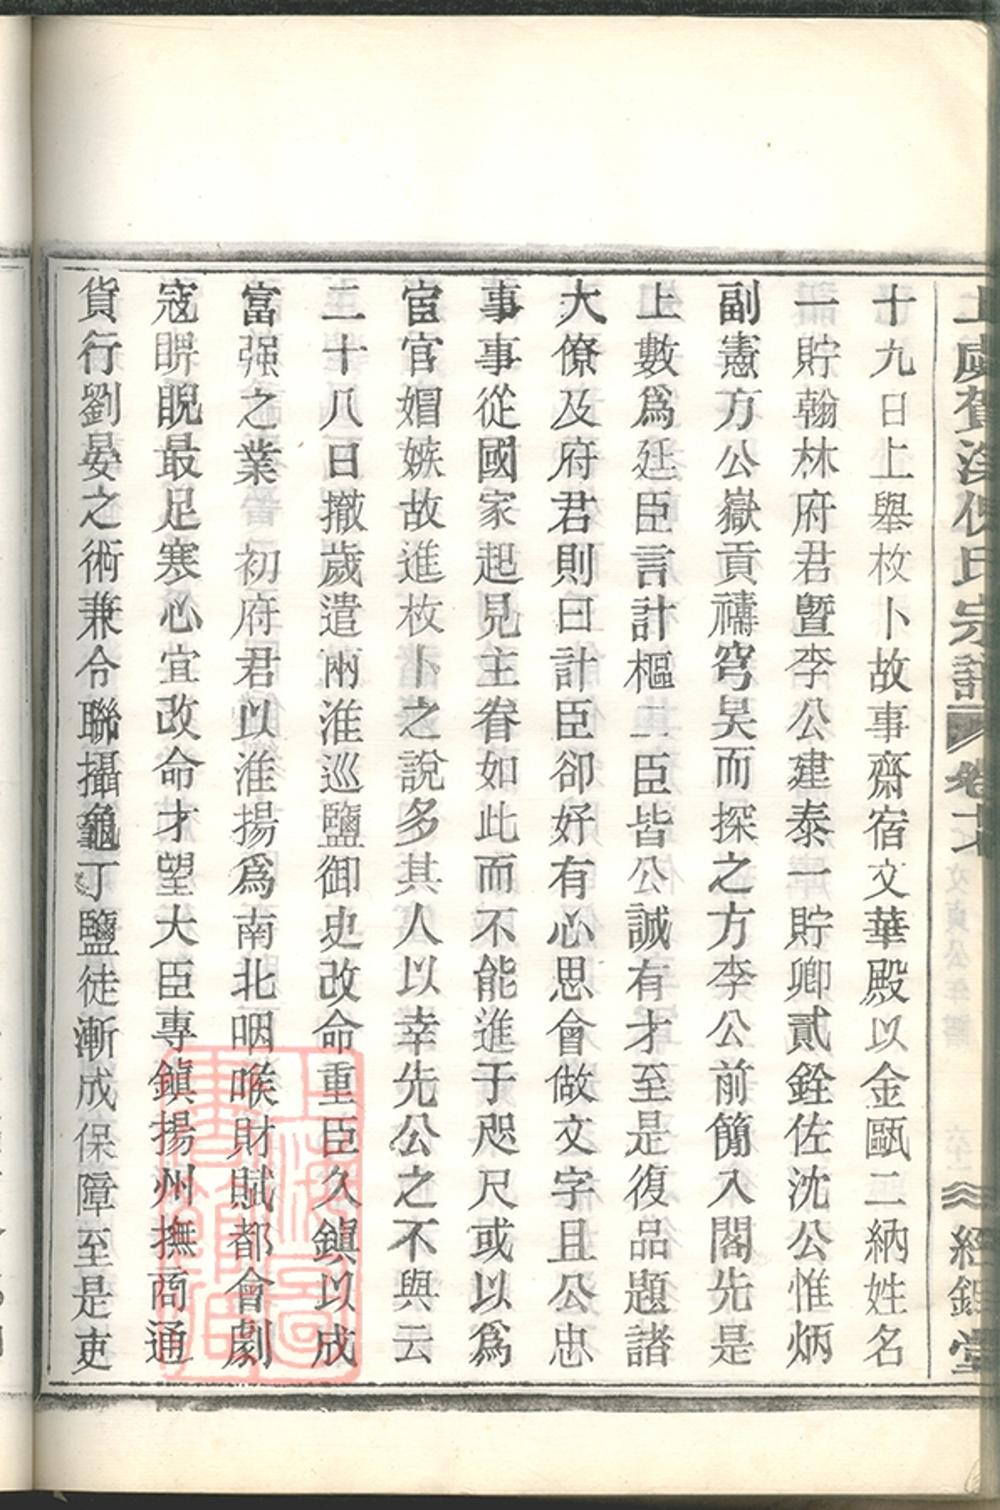 上虞賀溪倪氏宗譜 卷十七 文貞公年譜 六十一 經鉏堂
十九日上舉枚卜故事齋宿文華殿以金甌二納姓名
一貯翰林府君暨李公建泰一貯卿貳銓佐沈公惟炳
副憲方公嶽貢禱穹昊而探之方李公前簡入閣先是
上數爲廷臣言計樞二臣皆公誠有才至是復品題諸
大僚及府君則曰計臣卻好有心思會做文字且公忠
事事從國家起見主眷如此而不能進于咫尺或以爲
宦官媢嫉故進枚卜之說多其人以幸先公之不與云
二十八日撤歲遣兩淮巡鹽御史改命重臣久鎮以成
富强之業 初府君以淮揚爲南北咽喉財賦都會劇
寇睥睨最足寒心宜改命才望大臣專鎮揚州撫商通
貨行劉晏之術兼令聯攝竈丁鹽徒漸成保障至是吏
上海圖書館藏